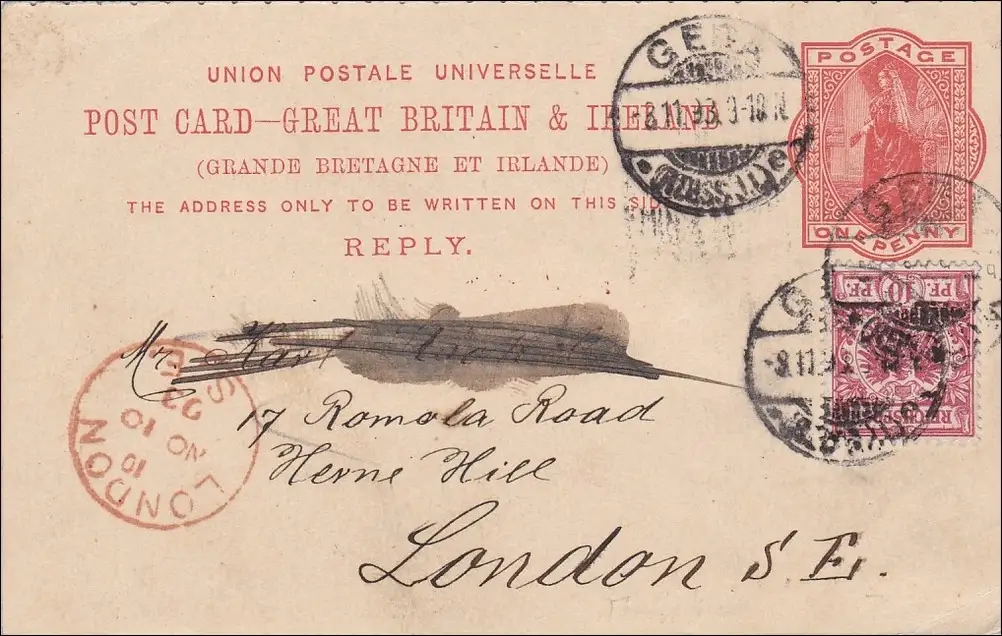 UNION POSTALE UNIVERSELLE
POST CARD—GREAT BRITAIN & IRELAND
(GRANDE BRETAGNE ET IRLANDE)
THE ADDRESS ONLY TO BE WRITTEN ON THIS SIDE
REPLY.
GERA
-8.11.93. 9-10 N
(REUSS)
POSTAGE
ONE PENNY
10
PF.
PF.
-8.11.9
Mr.
17 Romola Road
Herne Hill
London S.E.
LONDON
S.E
NO 10